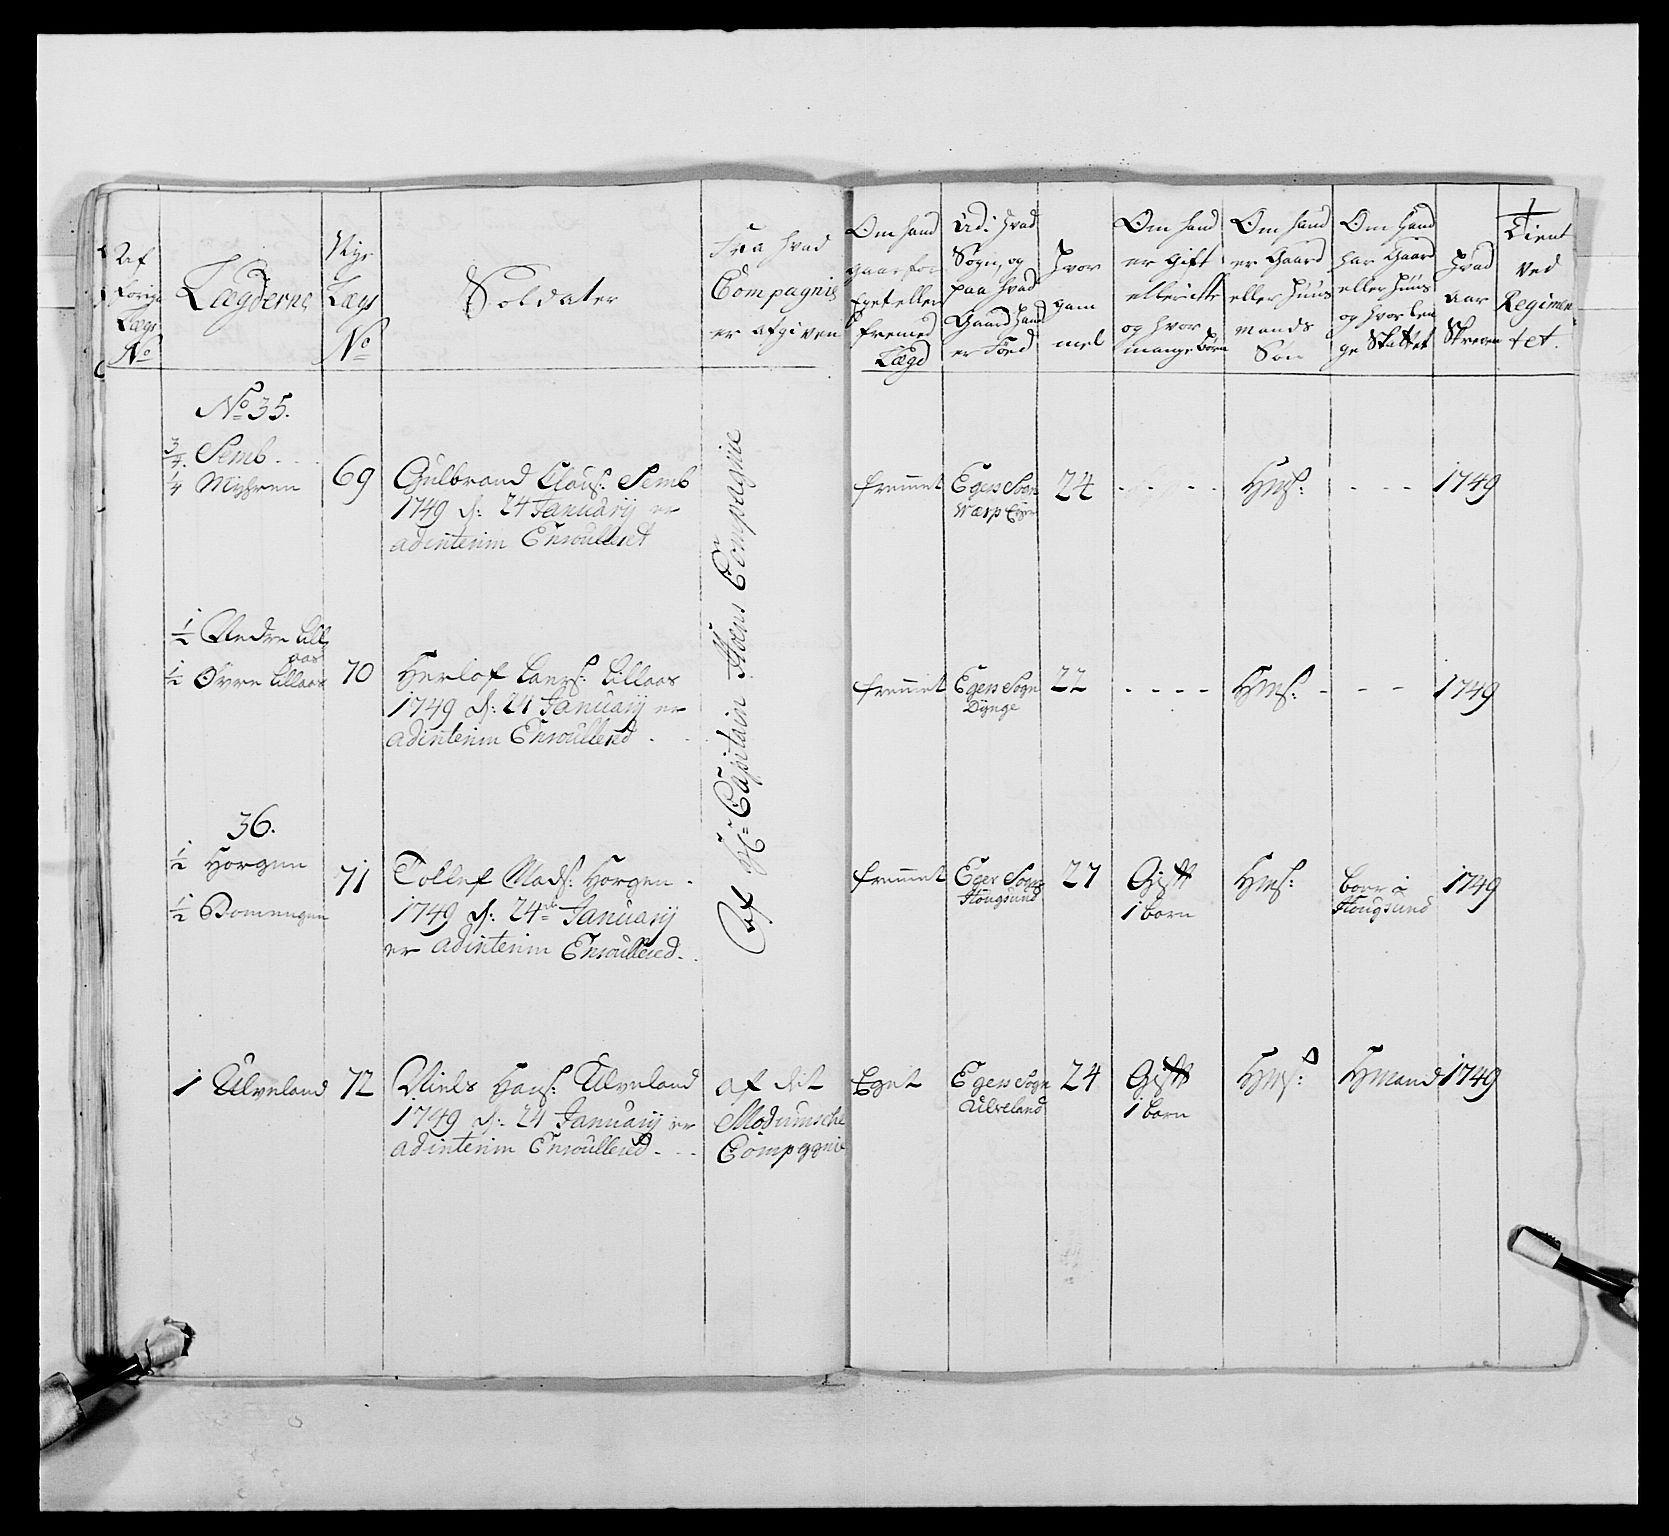 Af
forige
Lægs
No
Lægderne
Nye
Lægs
No
Soldater
Fra hvad
Compagnie
er afgiven
Om hand
gaar for
Eget eller
fremed
Lægd
Udi hvad
Sogn, og
paa hvad
Gaard hand
er Föed
Hvor
gam
mel
Om hand
er Gift
eller ikke
og hvor
mange börn
Om hand
er Gaard
eller Huus
mands
Sön
Om hand
har Gaard
eller Huus
og hvor len
ge Skattet
Hvad
Aar
Skreven
Tient
ved
Regimen
tet.
No 35.
3/4 Semb
1/4 Myhren
69
Gulbrand Claus: Semb
1749 d: 24 Januarij er
ad interim Enroulleret
fremmet
Egers Sogn
24
- - - -
Hms:
- - -
1749
1/2 Nedre Lill
aas
1/2 Övre Lillaas
70
Herlof Lars: Lillaas
1749 d: 24 Januarij er
ad interim Enroullered
fremmet
Egers Sogn
Dynge
22
- - - -
Hms:
- - -
1749
Af Hr Capitain Stoens Compagnie
36.
1/2 Horgen
1/2 Domengen
71
Tollef Mads: Horgen
1749 d: 24de Januarij
er ad interim Enroullered.
fremmet
Eger Sogn
Hougsund
27
Gift
1 barn
Hms:
boer i
Hougsund
1749
1 Ulveland
72
Niels Hans: Ulveland
1749 d: 24 Januarij er
ad interim Enroulleed
af det
Modumsche
Compagnie
Eget
Egers Sogn
Ulveland
24
Gift
1 barn
Hms:
Hmand
1749